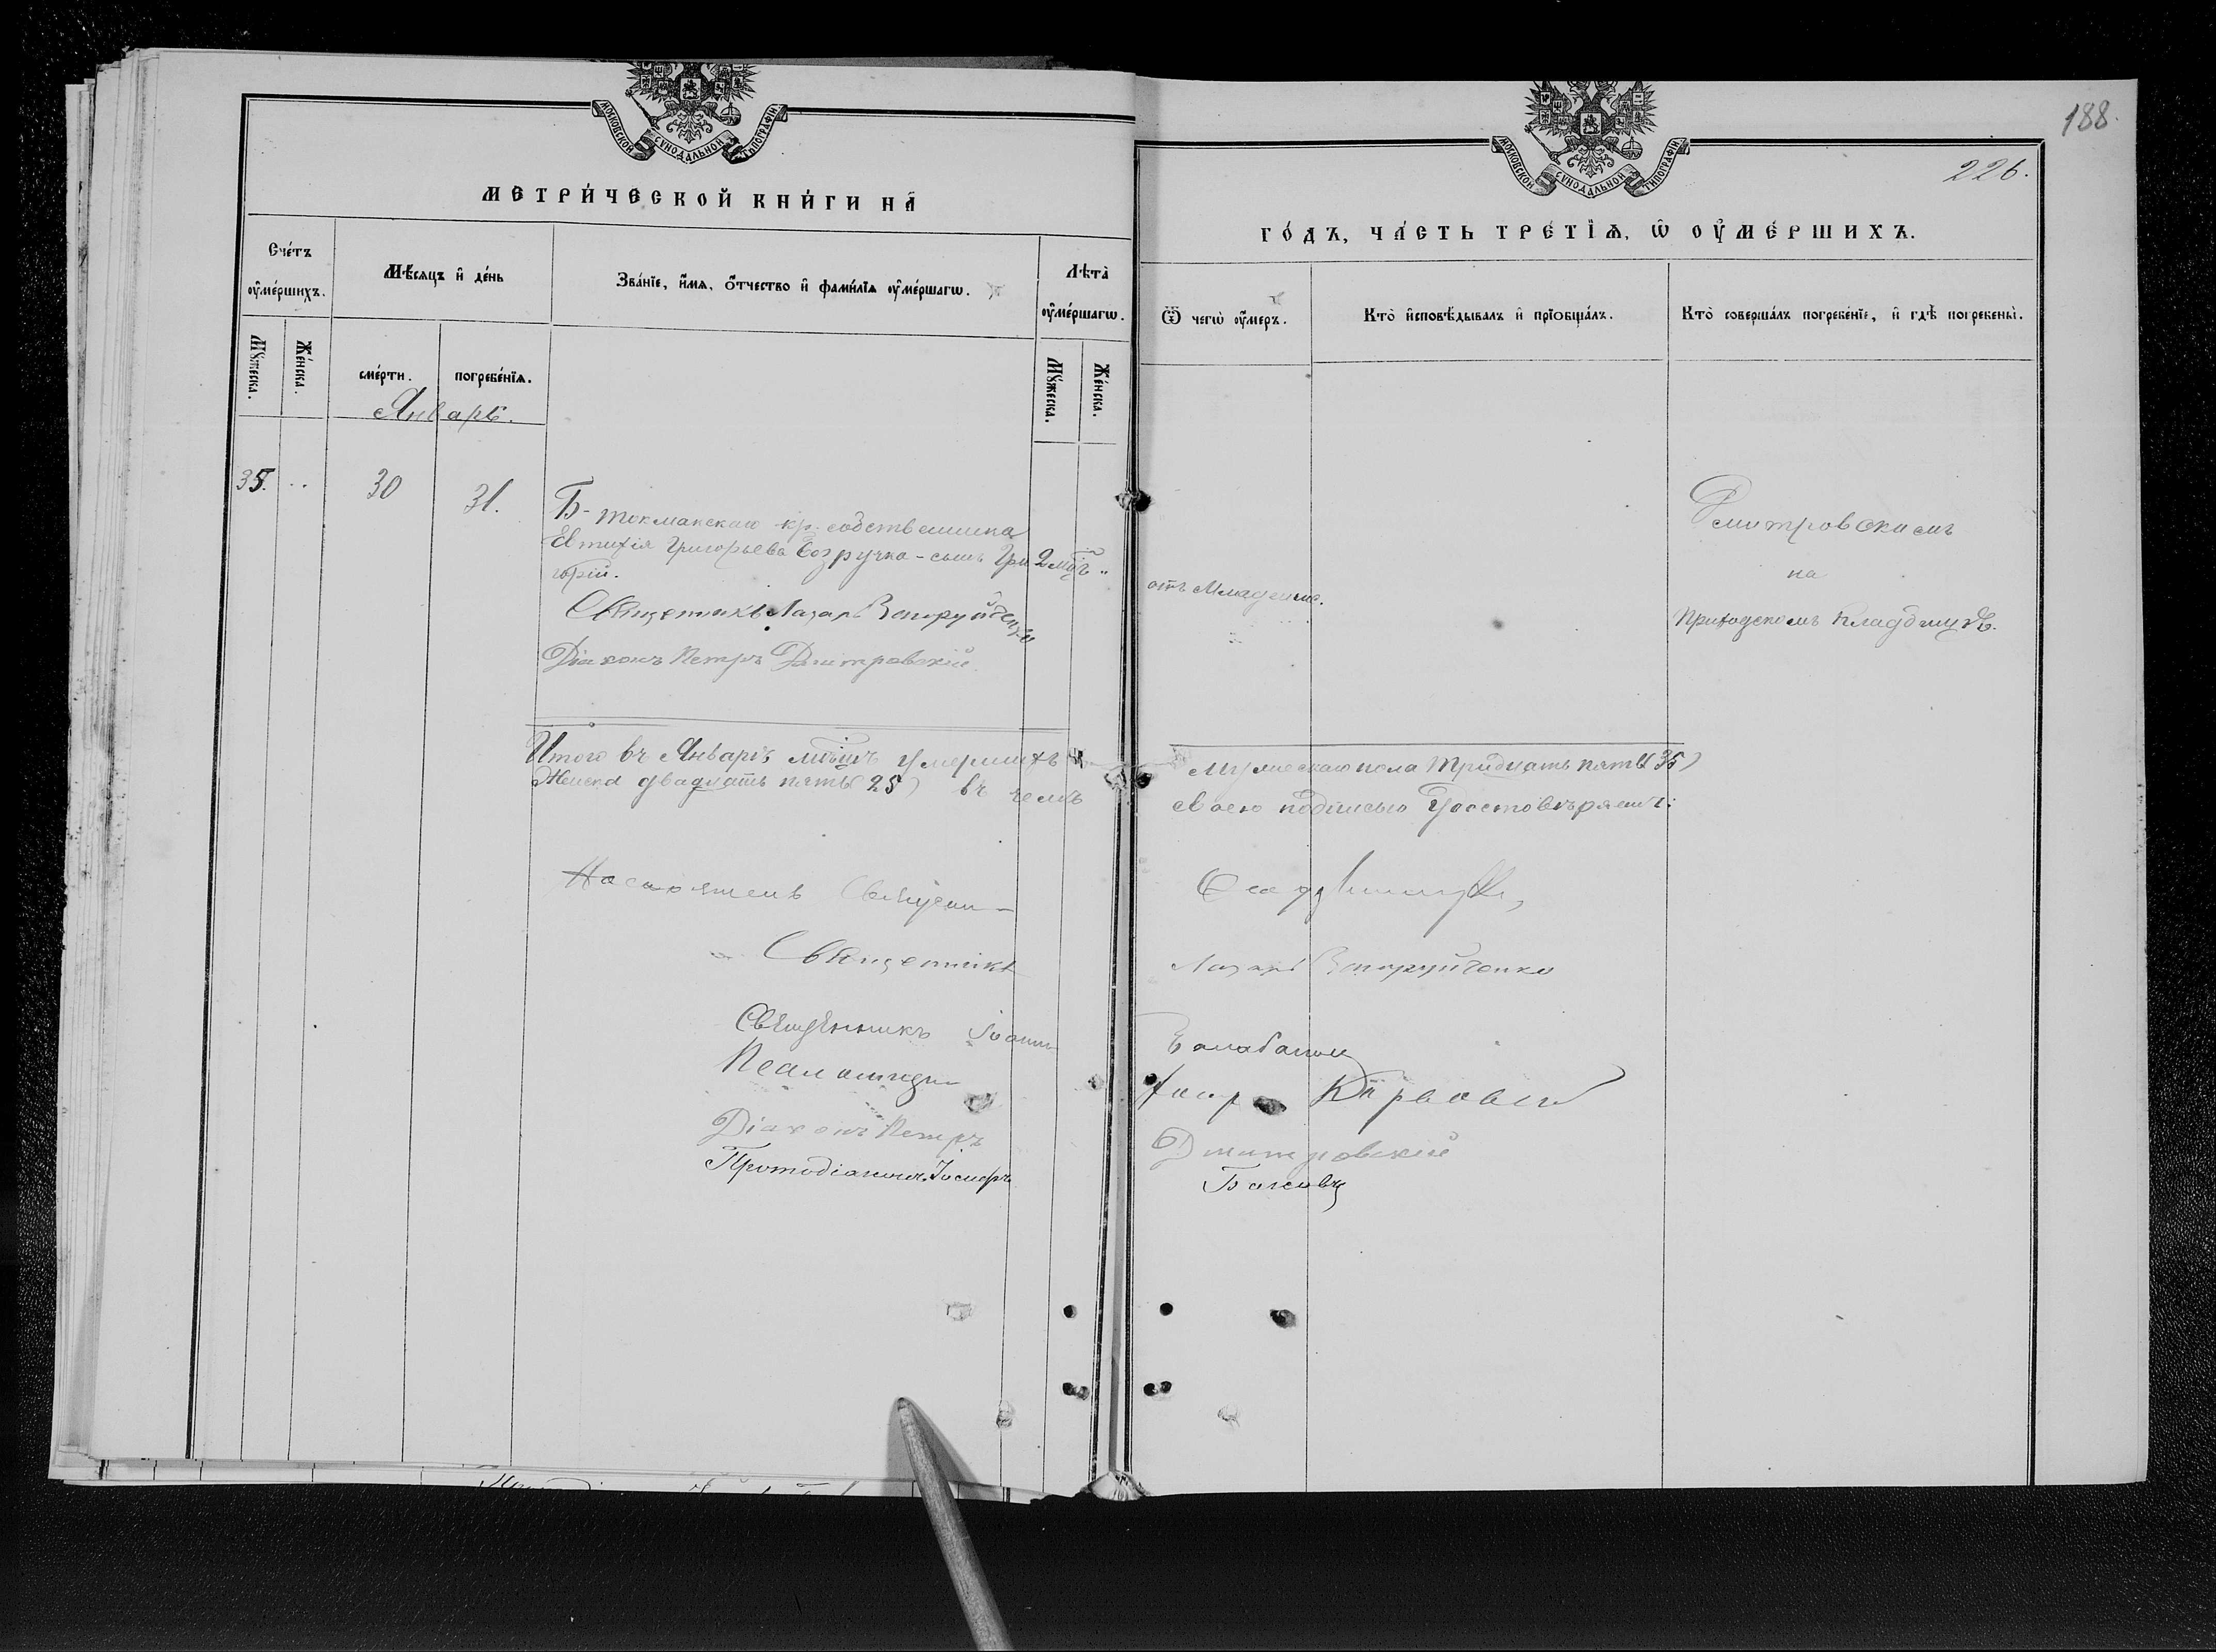 МОСКОВСКОЙ СѴНОДАЛЬНОЙ ТИПОГРАФІИ
МЕТРИ́ЧЕСКОЙ КНИ́ГИ НА̀
Сче́тъ ᲂу҆ме́ршихъ.
Мꙋ́жеска.
Же́нска.
Мѣ́сяцъ и҆ де́нь
сме́рти.
погребе́нїѧ.
Зва́нїе, и҆́мѧ, ѻ҆́тчество и҆ фами́лїѧ ᲂу҆ме́ршагѡ.
Лѣта̀ ᲂу҆ме́ршагѡ.
Мꙋ́жеска.
Же́нска.
Январь.
35.
..
30
31.
Б-токмакскаго кр. собственника
Евтихія Григорьева Безручка - сынъ Гри
горій.
2 мѣс.
"
Священникъ Лазарь Запоруйченко
Діаконъ Петръ Дмитровскій
Итого въ Январѣ мѣсяцѣ умершихъ
Женска двадцать пять (25) въ чемъ
Настоятель Священ-
Священникъ
Священникъ Іоаннъ
Псаломщикъ
Діаконъ Петръ
Протодіаконъ Іосифъ
188.
226.
МОСКОВСКОЙ СѴНОДАЛЬНОЙ ТИПОГРАФІИ
ГО́ДЪ, ЧА́СТЬ ТРЕ́ТЇѦ, Ѡ҆ ОУ҆МЕ́РШИХЪ.
Ѿ чегѡ̀ ᲂу҆́меръ.
Кто̀ и҆сповѣ́дывалъ и҆ прїобща́лъ.
Кто̀ соверша́лъ погребе́нїе, и҆ гдѣ̀ погребены̀.
отъ младенч.
Дмитровскимъ
на
Приходскомъ кладбищѣ.
Мужескаго пола тридцать пять (35)
своею подписью удостовѣряемъ:
Лазарь Запоруйченко
Балабанов
Дмитровскій
Баженовъ